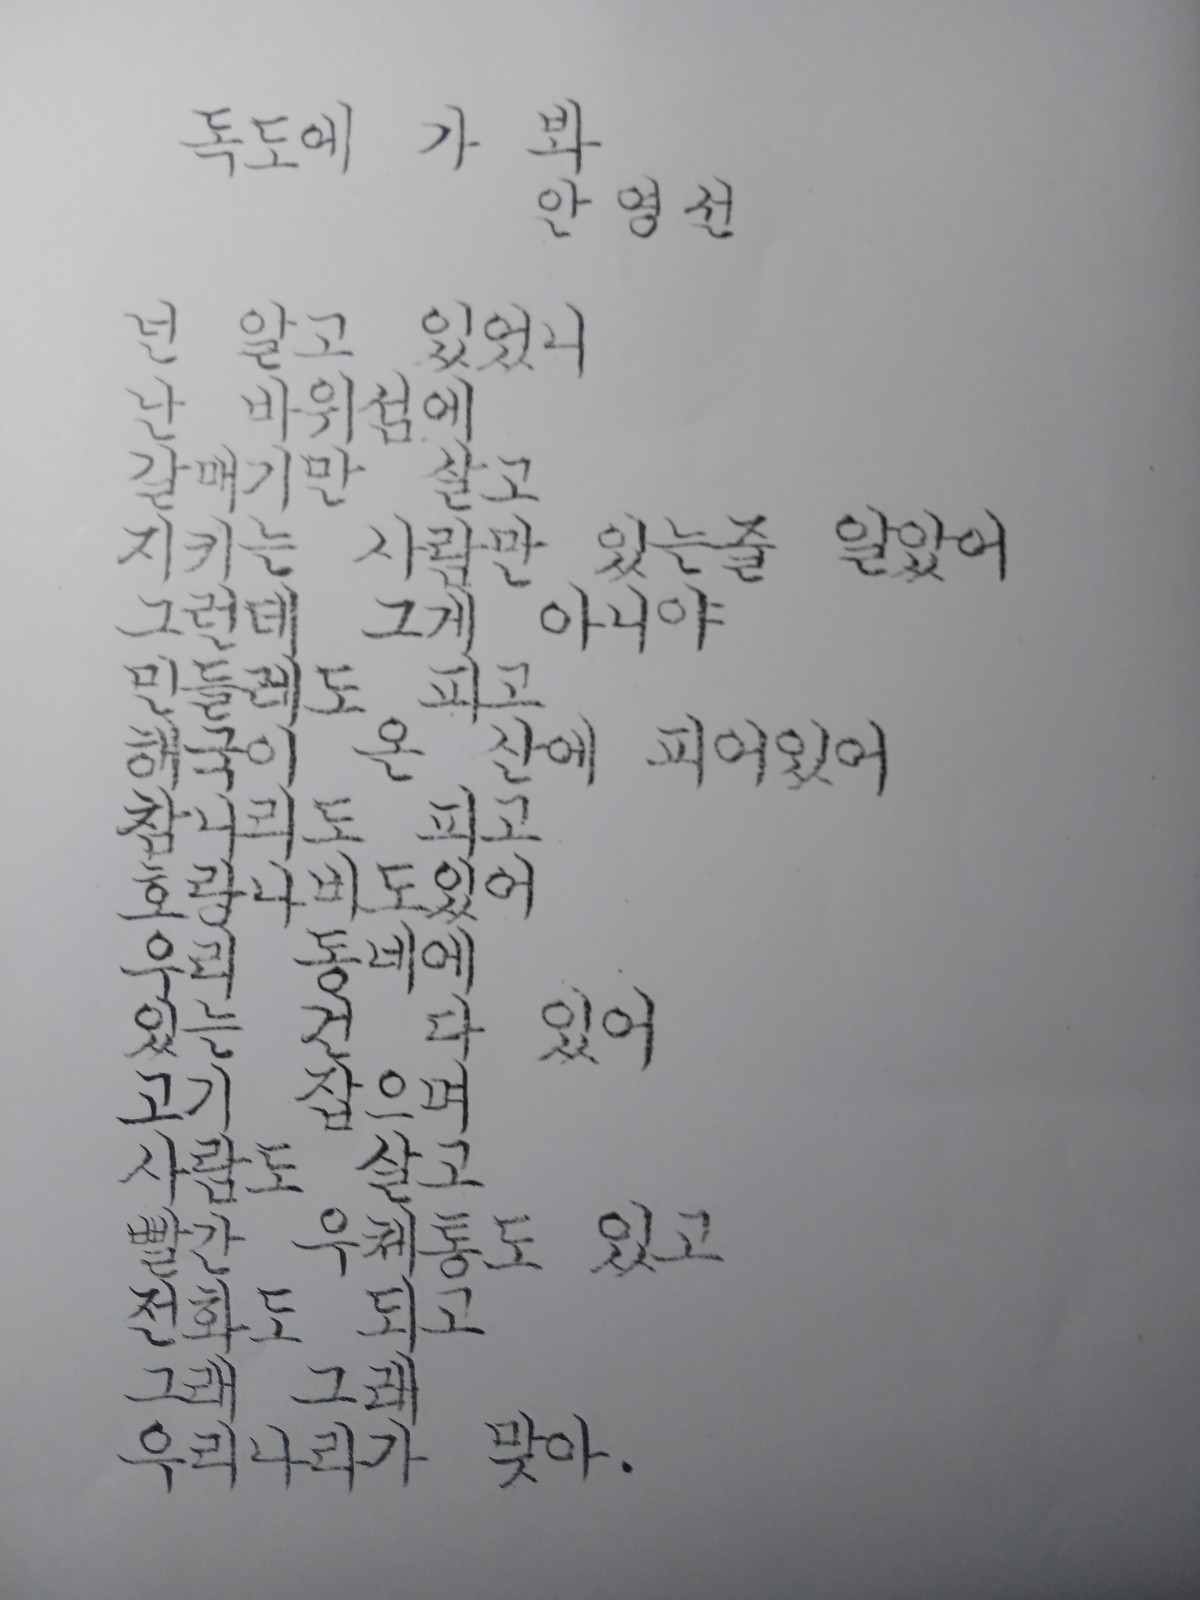 독도에 가 봐
안영선
넌 알고 있었니
난 바위섬에
갈매기만 살고
지키는 사람만 있는줄 알았어
그런데 그게 아니야
민들레도 피고
해국이 온 산에 피어있어
참나리도 피고
호랑나비도있어
우리 동네에
있는 건 다 있어
고기 잡으며
사람도 살고
빨간 우체통도 있고
전화도 되고
그래 그래
우리나라가 맞아.